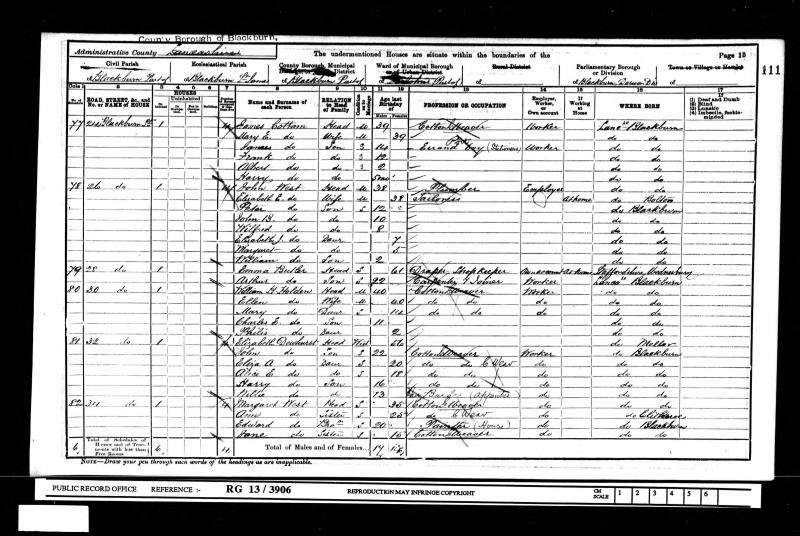 County Borough of Blackburn,
Administrative County Lancashire The undermentioned Houses are situate within the boundaries of the Page 13
111
Civil Parish Ecclesiastical Parish County Borough, Municipal Ward of Municipal Borough Rural District Parliamentary Borough or Division Town or Village or Hamlet
of Blackburn Part of of Blackburn St of Blackburn Part of of Part of of of Blackburn
HOUSES
ROAD, STREET, &c., and No. or NAME of HOUSE Name and Surname of each Person RELATION to Head of Family Age last Birthday PROFESSION OR OCCUPATION Employer, Worker, or Own account If Working at Home WHERE BORN If (1) Deaf and Dumb (2) Blind (3) Lunatic (4) Imbecile, feeble-minded
77 24 Blackburn St 1 James Cottom Head M 39 Cotton Weaver Worker Lancs Blackburn
Mary E. do Wife M 39 do do
James do Son S 14 Errand Boy (Stationers) Worker do do
Frank do do S 12 do do
Albert do do S 2 do do
Harry do do do do
78 26 do 1 John West Head M 38 Plumber Employer do do
Elizabeth E. do Wife M 38 Tailoress at home do Bolton
Peter do Son S 12 do Blackburn
John B. do do 10 do do
Wilfred do do 8 do do
Elizabeth J. do Daur 7 do do
Margaret do do 5 do do
William do Son 2 do do
79 28 do 1 Emma Butler Head S 61 Draper Shopkeeper Own account at home Staffordshire Wednesbury
Arthur do Son S 22 Carpenter & Joiner Worker Lancs Blackburn
80 30 do 1 William H. Holden Head M 40 Cotton Weaver Worker do do
Ellen do Wife M 40 do do do do do
Mary do Daur S 14 do do do do do
Charles E. do Son 11 do do
Philis do Daur 2 do do
81 32 do 1 Elizabeth Dewhurst Head Wid 56 do Mellor
John do Son S 22 Cotton Weaver Worker do Blackburn
Eliza A. do Daur S 20 do do C Weav do do do
Alice E. do do S 18 do do do do do
Harry do Son 16 do do do do do
Willie do do 13 Barber (apprentice) do do do
82 34 do 1 Margaret West Head S 35 Cotton Weaver do do do
Ann do Sister S 25 do C Weav do do Clitheroe
Edward do Bro S 20 Painter (House) do do Blackburn
Jane do Sister S 15 Cotton Weaver do do do
6 Total of Schedules of Houses and of Tenements with less than Five Rooms 6 Total of Males and of Females... 17
NOTE—Draw your pen through such words of the headings as are inapplicable.
PUBLIC RECORD OFFICE REFERENCE :- RG 13 / 3906 REPRODUCTION MAY INFRINGE COPYRIGHT CM SCALE 1 2 3 4 5 6